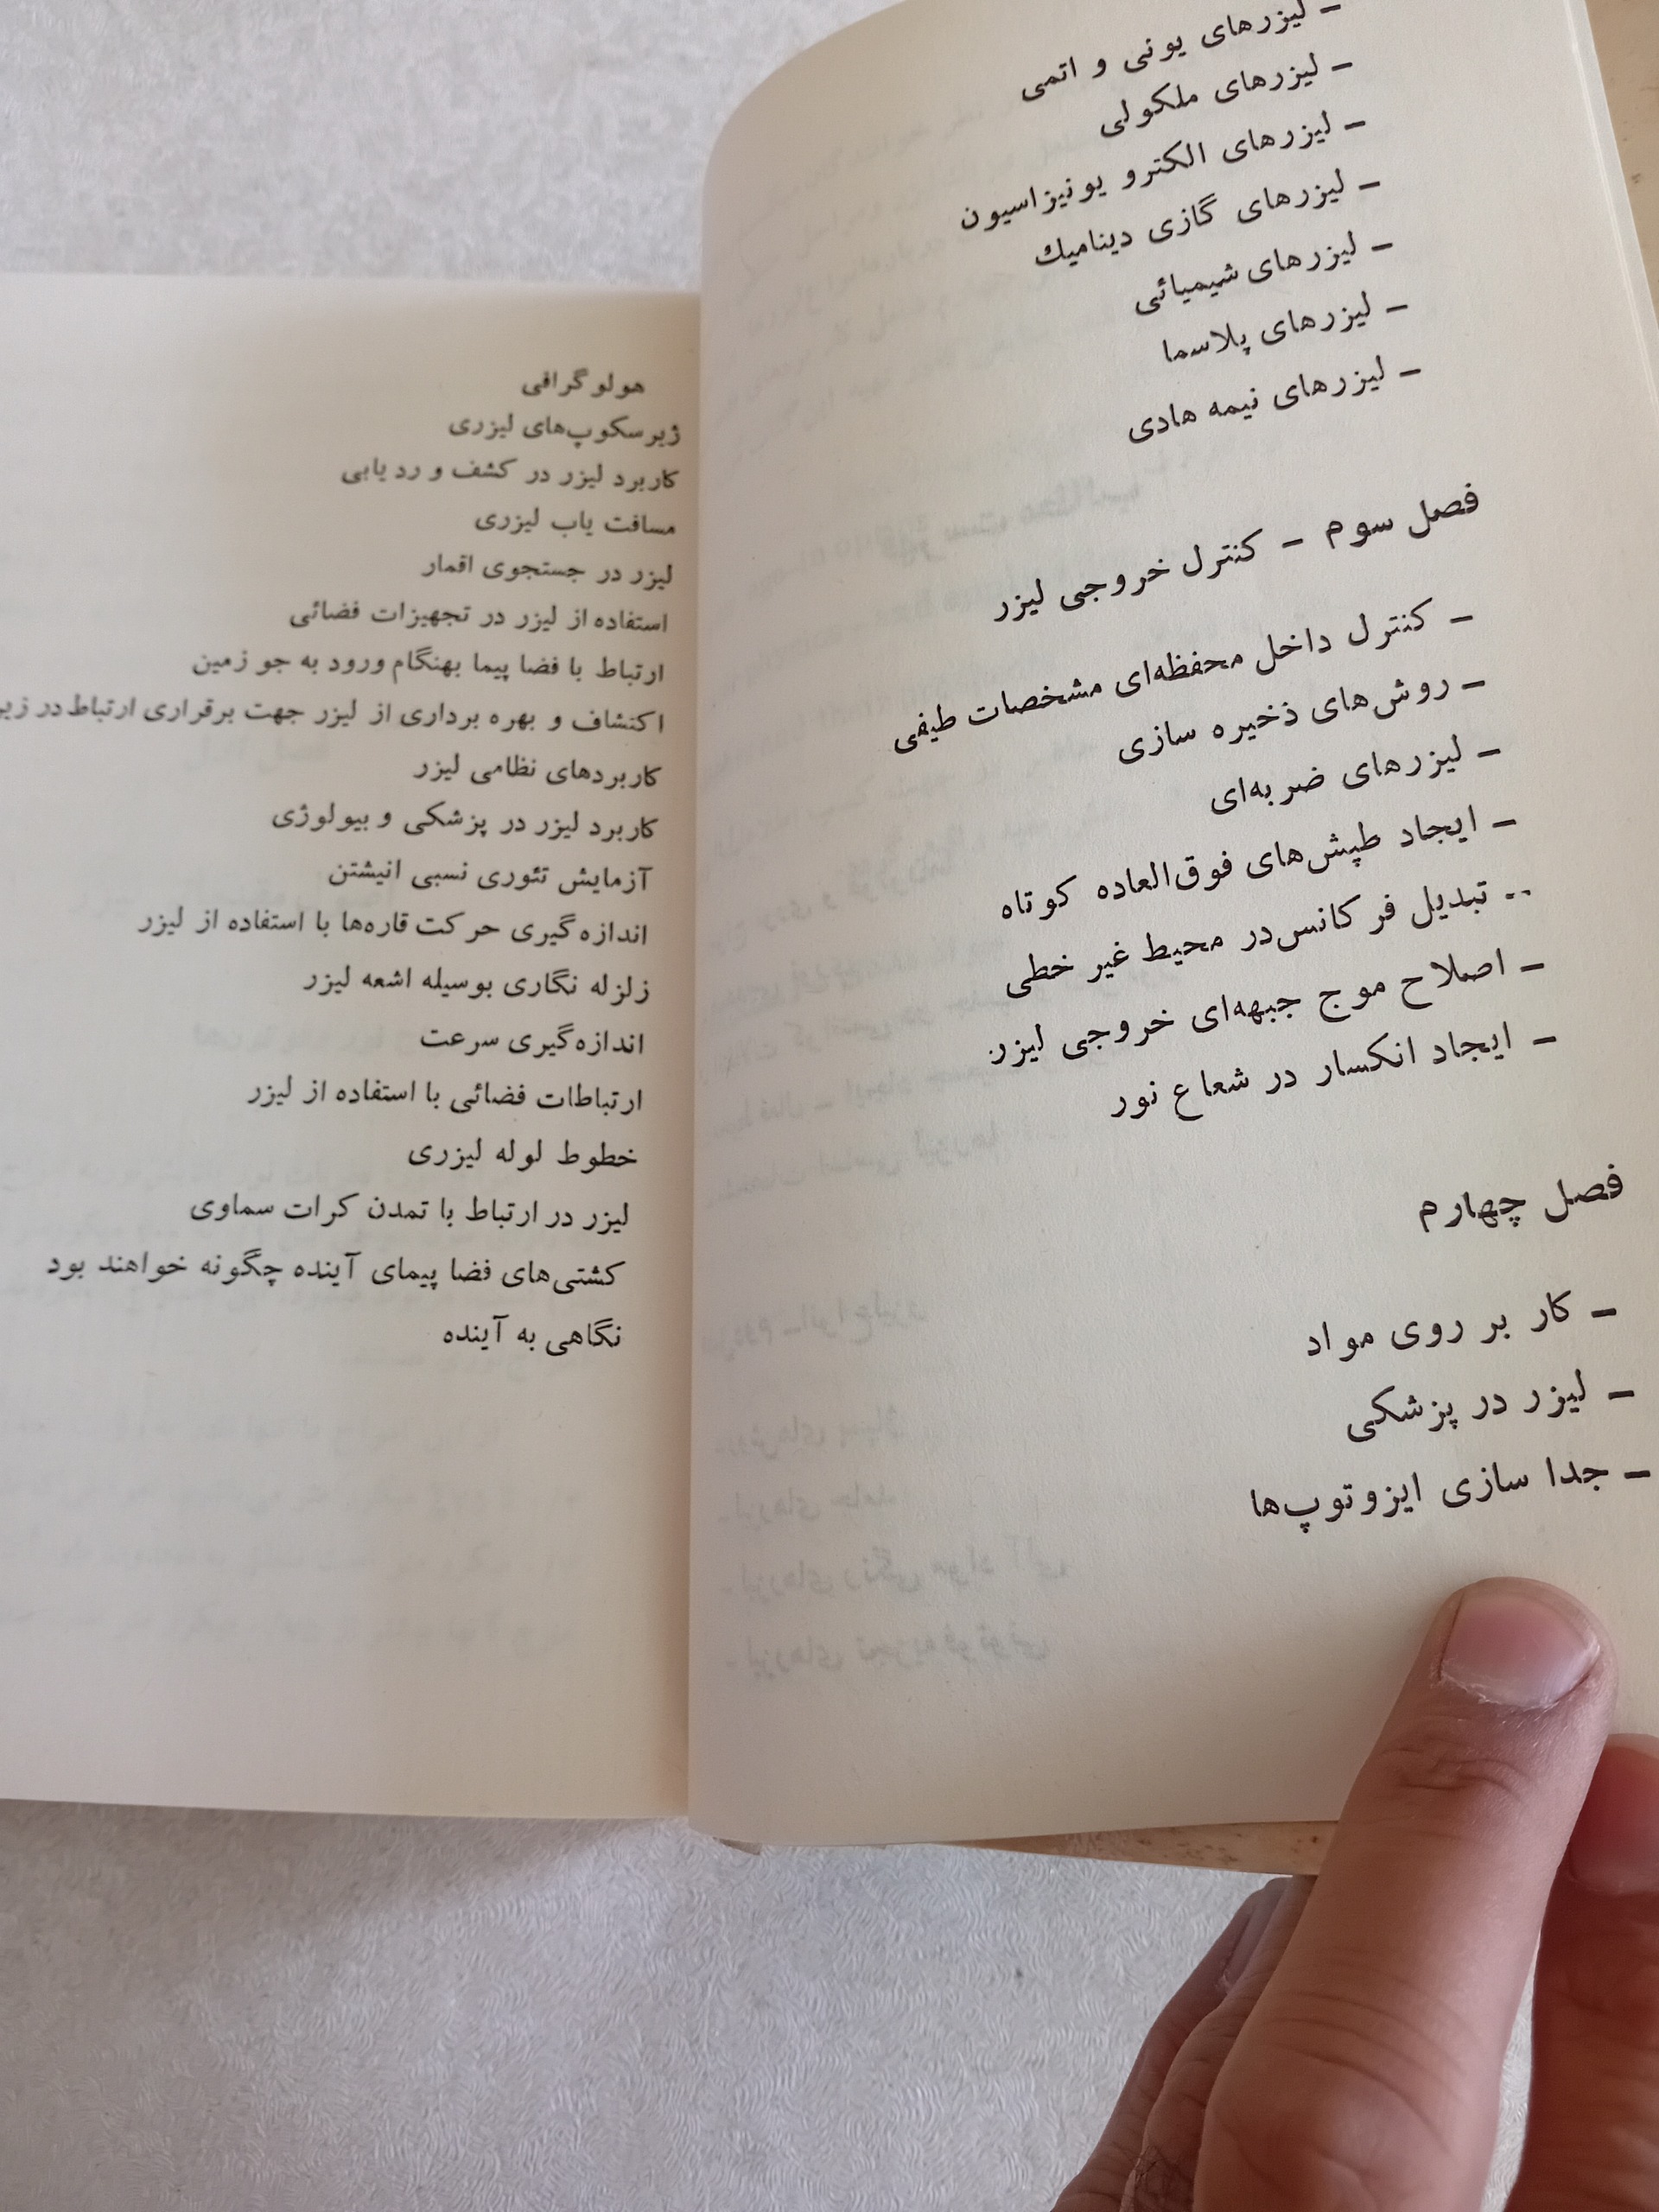 - لیزرهای یونی و اتمی
- لیزرهای ملکولی
- لیزرهای الکترو یونیزاسیون
- لیزرهای گازی دینامیك
- لیزرهای شیمیائی
- لیزرهای پلاسما
- لیزرهای نیمه هادی
فصل سوم - کنترل خروجی لیزر
- کنترل داخل محفظه‌ای مشخصات طیفی
- روش‌های ذخیره سازی
- لیزرهای ضربه‌ای
- ایجاد طپش‌های فوق‌العاده کوتاه
-- تبدیل فرکانس در محیط غیر خطی
- اصلاح موج جبهه‌ای خروجی لیزر
- ایجاد انکسار در شعاع نور
فصل چهارم
- کار بر روی مواد
- لیزر در پزشکی
- جدا سازی ایزوتوپ‌ها
هولوگرافی
ژیرسکوپ‌های لیزری
کاربرد لیزر در کشف و رد یابی
مسافت یاب لیزری
لیزر در جستجوی اقمار
استفاده از لیزر در تجهیزات فضائی
ارتباط با فضا پیما بهنگام ورود به جو زمین
اکتشاف و بهره برداری از لیزر جهت برقراری ارتباط در
کاربردهای نظامی لیزر
کاربرد لیزر در پزشکی و بیولوژی
آزمایش تئوری نسبی انیشتن
اندازه‌گیری حرکت قاره‌ها با استفاده از لیزر
زلزله نگاری بوسیله اشعه لیزر
اندازه‌گیری سرعت
ارتباطات فضائی با استفاده از لیزر
خطوط لوله لیزری
لیزر در ارتباط با تمدن کرات سماوی
کشتی‌های فضا پیمای آینده چگونه خواهند بود
نگاهی به آینده